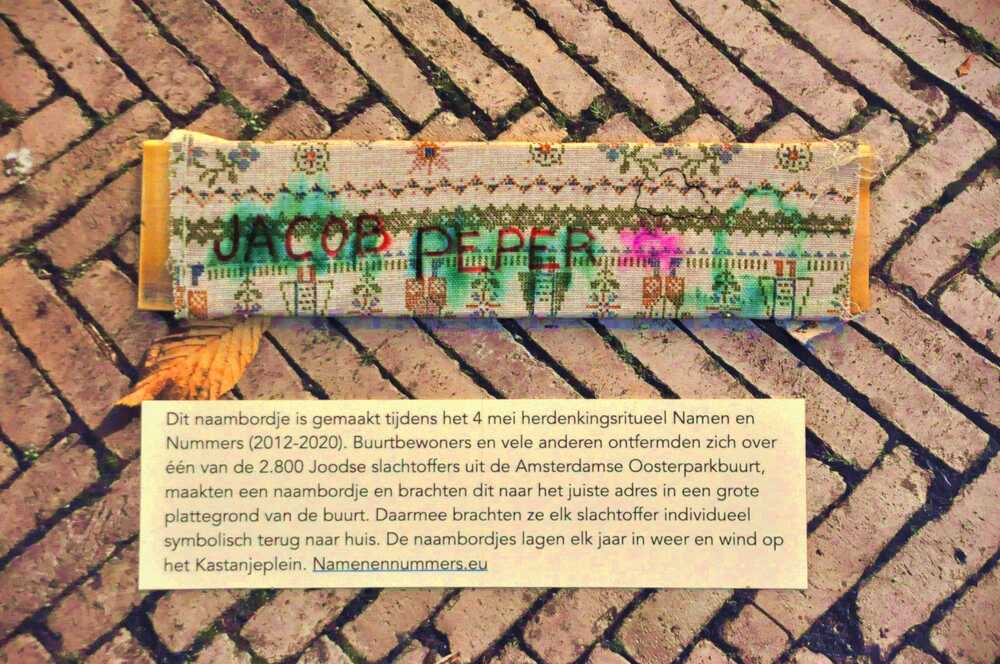 JACOB PEPER
Dit naambordje is gemaakt tijdens het 4 mei herdenkingsritueel Namen en
Nummers (2012-2020). Buurtbewoners en vele anderen ontfermden zich over
één van de 2.800 Joodse slachtoffers uit de Amsterdamse Oosterparkbuurt,
maakten een naambordje en brachten dit naar het juiste adres in een grote
plattegrond van de buurt. Daarmee brachten ze elk slachtoffer individueel
symbolisch terug naar huis. De naambordjes lagen elk jaar in weer en wind op
het Kastanjeplein. Namenennummers.eu